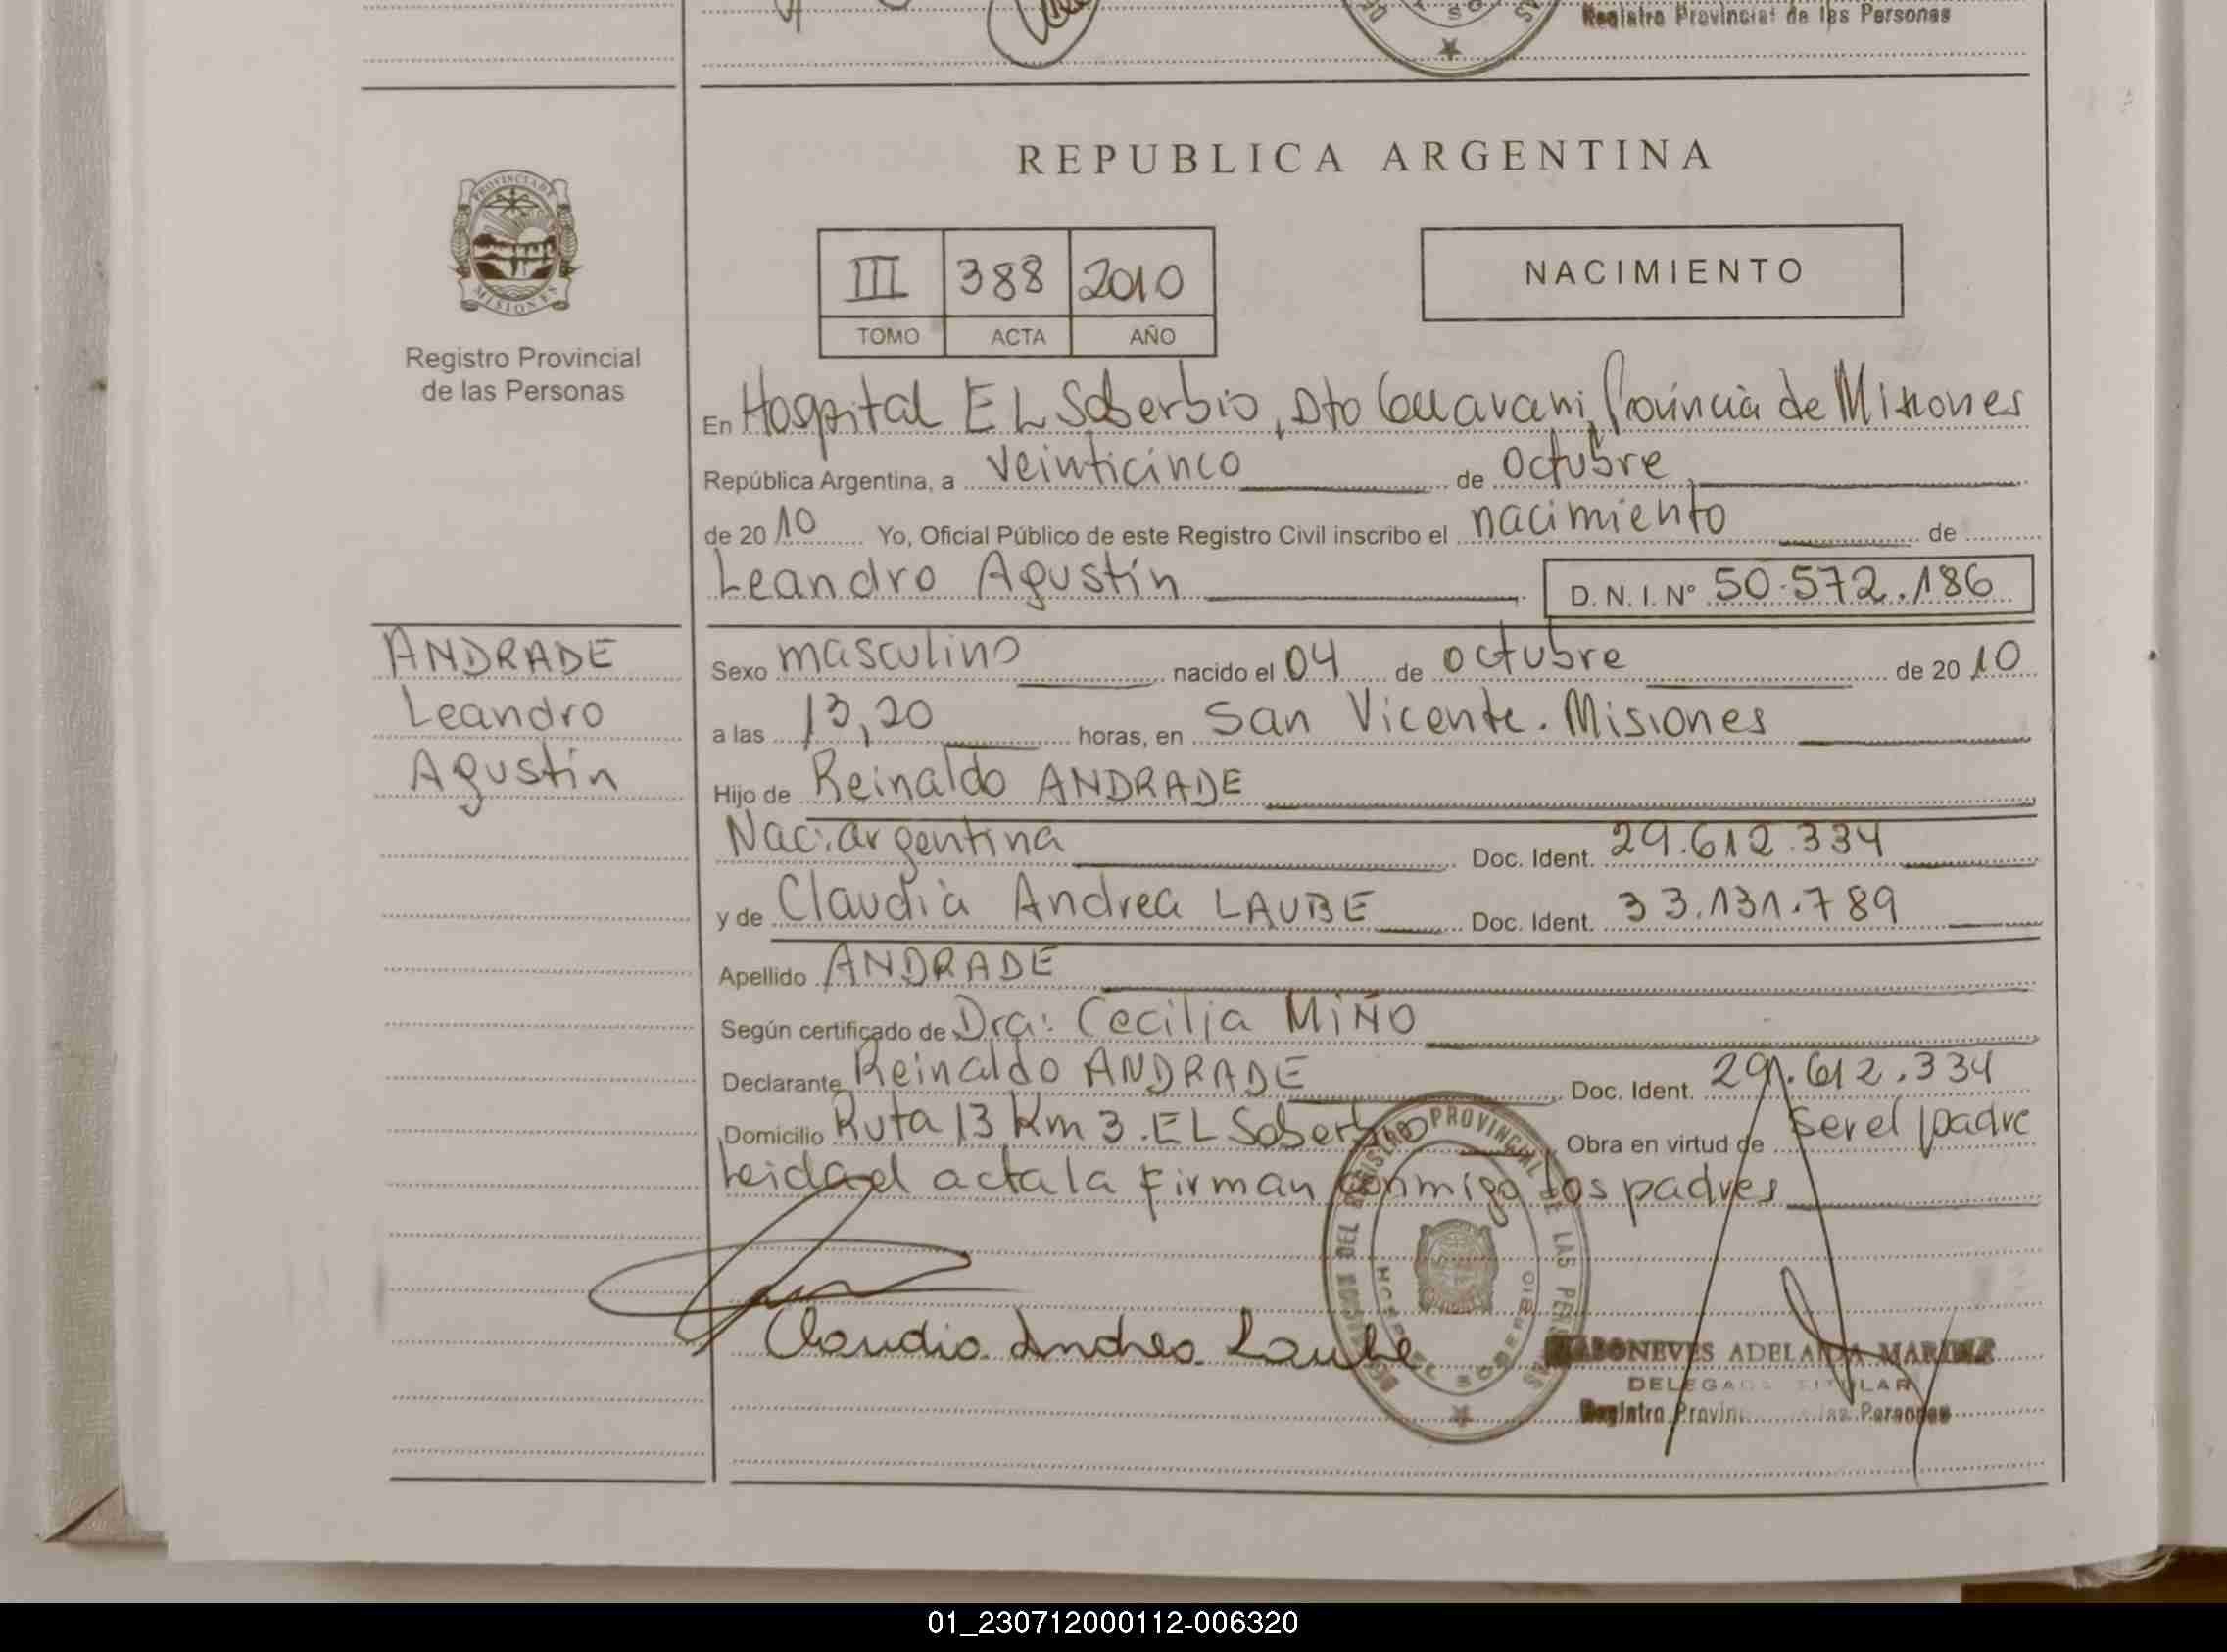 Registro Provincial de las Personas
REPUBLICA ARGENTINA
PROVINCIA DE
MISIONES
Registro Provincial
de las Personas
III 388 2010
TOMO ACTA AÑO
NACIMIENTO
En Hospital EL Soberbio, Dto Guarani, Provincia de Misiones
República Argentina, a veinticinco de octubre
de 2010 Yo, Oficial Público de este Registro Civil inscribo el nacimiento de
Leandro Agustín D. N. I. Nº 50.572.186
ANDRADE
Leandro
Agustín
Sexo masculino nacido el 04 de octubre de 2010
a las 13,20 horas, en San Vicente. Misiones
Hijo de Reinaldo ANDRADE
Nac: argentina Doc. Ident. 29.612.334
y de Claudia Andrea LAUBE Doc. Ident. 33.131.789
Apellido ANDRADE
Según certificado de Dra: Cecilia MIÑO
Declarante Reinaldo ANDRADE Doc. Ident. 29.612.334
Domicilio Ruta 13 Km 3. EL Soberbio Obra en virtud de ser el padre
Leida el acta la firman conmigo los padres
REGISTRO PROVINCIAL DE LAS PERSONAS
HOSPITAL EL SOBERBIO
Claudia Andrea Laube
ADELAIDA
DELEGADA TITULAR
Registro Provincial de las Personas
01_230712000112-006320